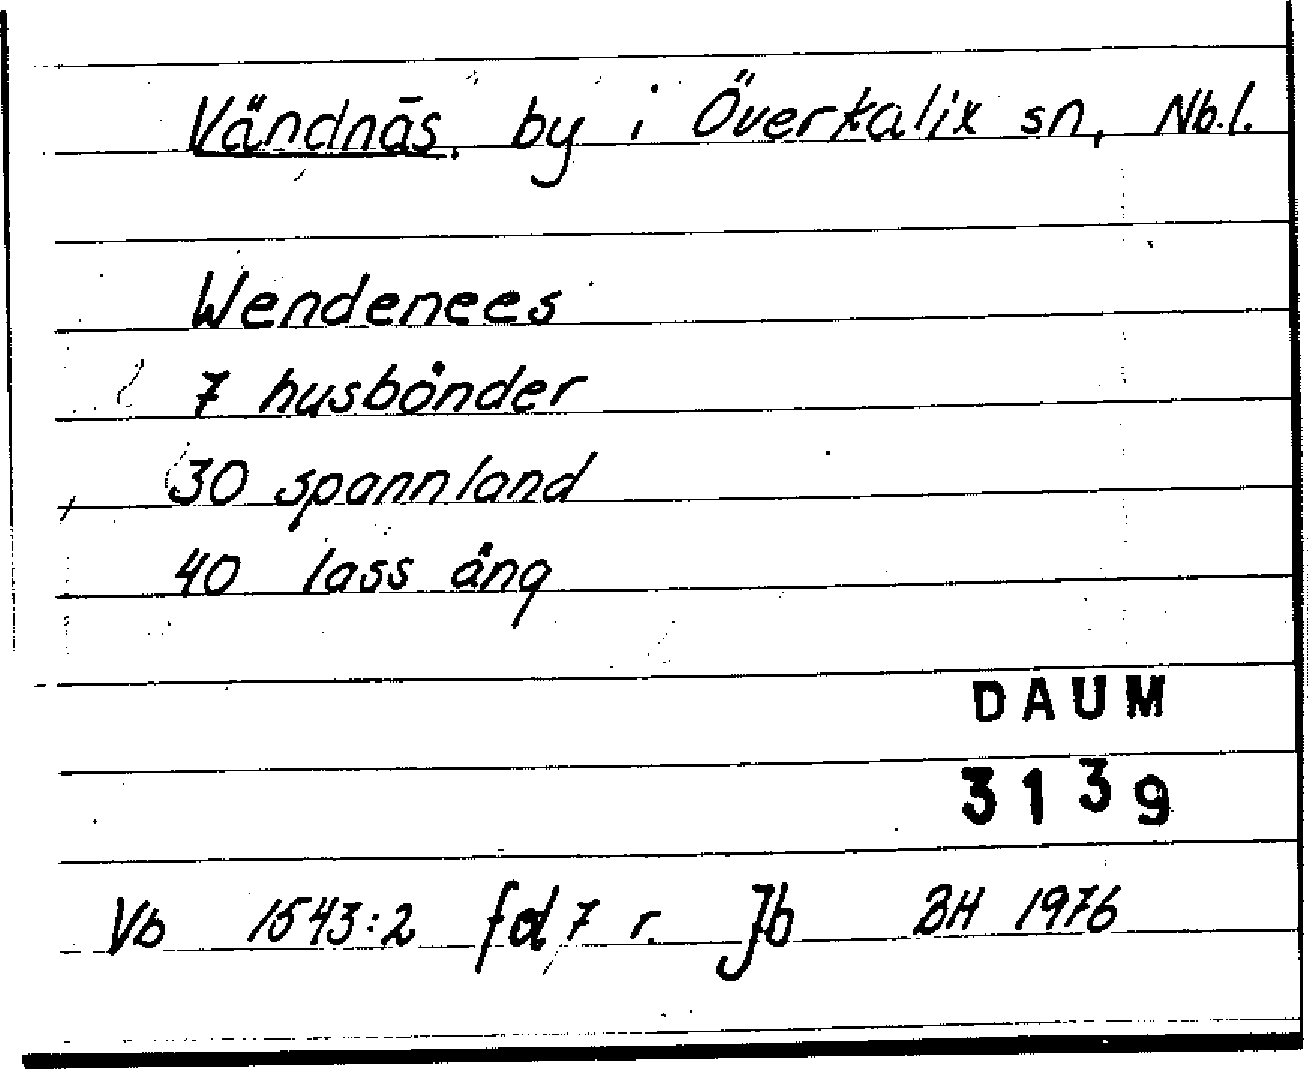 Vändnäs. by i Överkalix sn, Nb.l.
Wendenees
7 husbönder
30 spannland
40 lass äng
DAUM
3139
Vb 1543:2 fol 7 r. Jb BH 1976